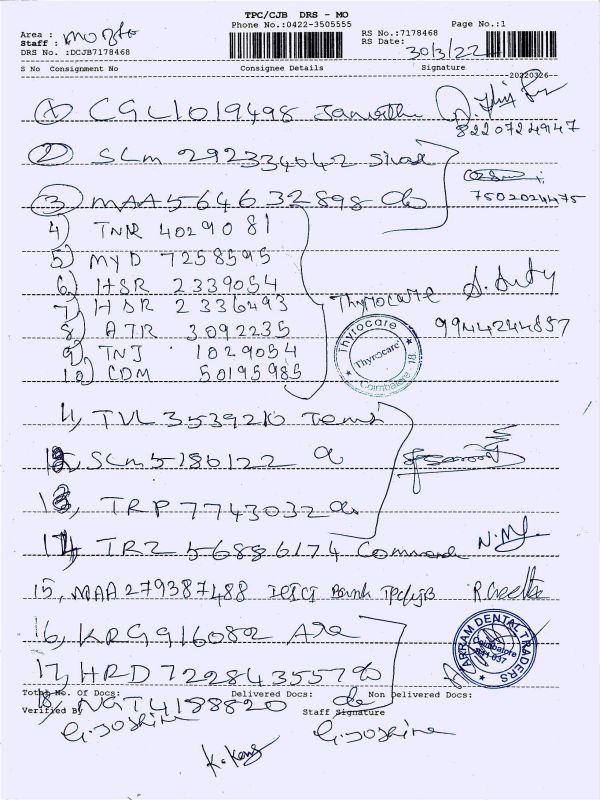 TPC/CJB DRS - MO
Phone No.:0422-3505555
Page No.:1
Area :
Staff :
DRS No. :DCJB7178468
RS No.:7178468
RS Date: 30/3/22
S No Consignment No Consignee Details Signature
20220326
1) CGL1019498
8220724947
2) SLM 292334042
3) MAA564632898 do
7502024475
4) TNR 4029081
5) MYD 7258595
6) HSR 2339054
7) HSR 2336493
Thyrocare
8) ATR 3092235
9944244857
9) TNJ 1029054
10) CDM 50195985
Thyrocare
Thyrocare
Coimbatore 18.
11, TVL 3539210
12, SLM5186122
13, TRP 7743032 do
14, TRZ 56886174
15, MAA279387488 ICICI Bank Tpcljb
16, KRG916082
ARRAM DENTAL TRADERS
Coimbatore
641 037
17, HRD 722843557 do
Total No. Of Docs: Delivered Docs: Non Delivered Docs:
18, NGT4188820 do
Verified By Staff Signature
G. Joshina G. Joshina